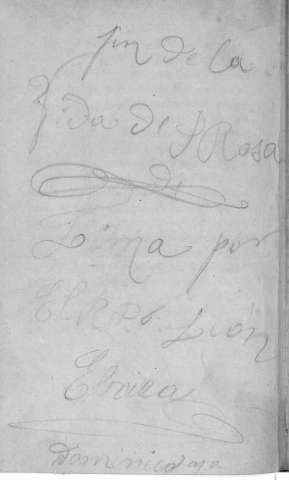 fin de la
Vida de S Rosa
de
Lima por
El R P. Leon
Dominicana